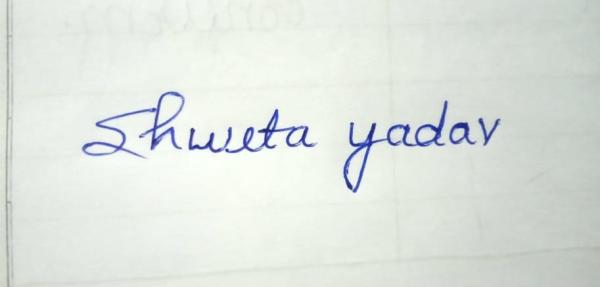 Shweta yadav